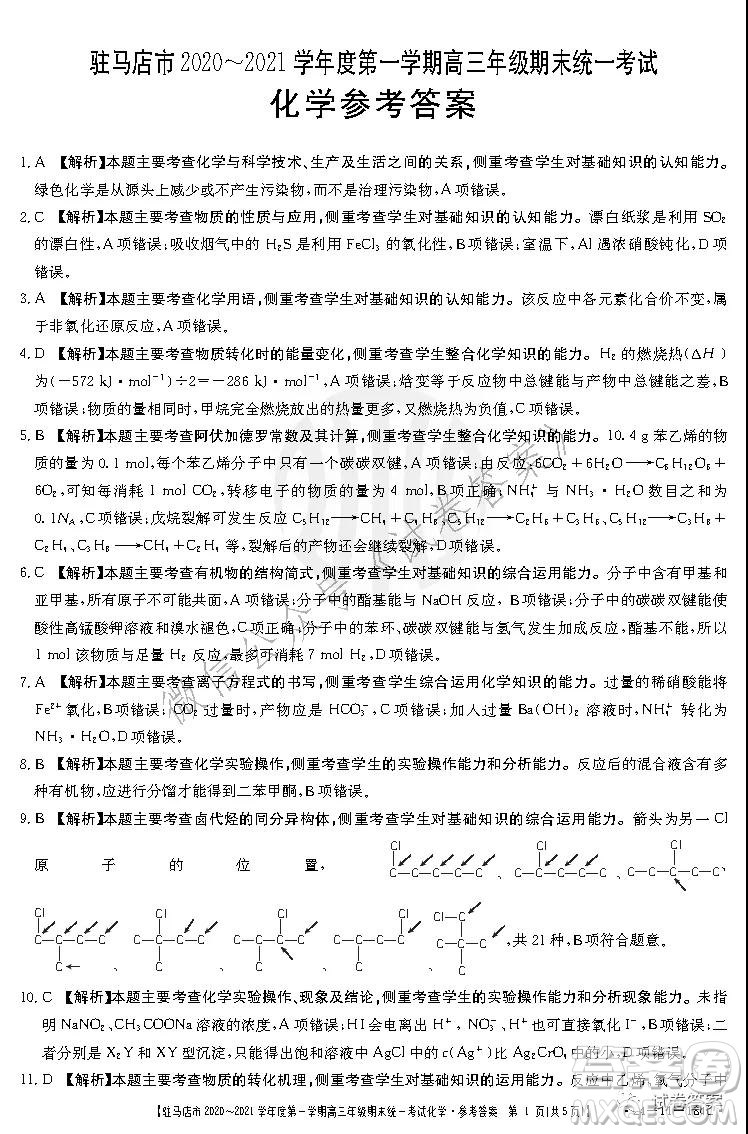 驻马店市 2020～2021 学年度第一学期高三年级期末统一考试
化学参考答案
1. A 【解析】本题主要考查化学与科学技术、生产及生活之间的关系,侧重考查学生对基础知识的认知能力。
绿色化学是从源头上减少或不产生污染物,而不是治理污染物,A项错误。
2. C 【解析】本题主要考查物质的性质与应用,侧重考查学生对基础知识的认知能力。漂白纸浆是利用 SO₂
的漂白性,A 项错误;吸收烟气中的 H₂S 是利用 FeCl₃ 的氧化性,B项错误;室温下,Al 遇浓硝酸钝化,D 项
错误。
3. A 【解析】本题主要考查化学用语,侧重考查学生对基础知识的认知能力。该反应中各元素化合价不变,属
于非氧化还原反应,A项错误。
4. D 【解析】本题主要考查物质转化时的能量变化,侧重考查学生整合化学知识的能力。H₂ 的燃烧热(ΔH)
为(－572 kJ·mol⁻¹)÷2＝－286 kJ·mol⁻¹,A项错误;焓变等于反应物中总键能与产物中总键能之差,B
项错误;物质的量相同时,甲烷完全燃烧放出的热量更多,又燃烧热为负值,C 项错误。
5. B 【解析】本题主要考查阿伏加德罗常数及其计算,侧重考查学生整合化学知识的能力。10.4 g苯乙烯的物
质的量为 0.1 mol,每个苯乙烯分子中只有一个碳碳双键,A 项错误;由反应,6CO₂＋6H₂O⟶C₆H₁₂O₆＋
6O₂,可知每消耗 1 mol CO₂,转移电子的物质的量为 4 mol,B 项正确;NH₄⁺ 与 NH₃·H₂O 数目之和为
0.1Nₐ,C项错误;戊烷裂解可发生反应 C₅H₁₂⟶CH₄＋C₄H₈、C₅H₁₂⟶C₂H₆＋C₃H₆、C₅H₁₂⟶C₃H₈＋
C₂H₄、C₅H₁₂⟶C₄H₁₀＋CH₂ 等,裂解后的产物还会继续裂解,D项错误。
6. C 【解析】本题主要考查有机物的结构简式,侧重考查学生对基础知识的综合运用能力。分子中含有甲基和
亚甲基,所有原子不可能共面,A 项错误;分子中的酯基能与 NaOH 反应,B项错误;分子中的碳碳双键能使
酸性高锰酸钾溶液和溴水褪色,C 项正确;分子中的苯环、碳碳双键能与氢气发生加成反应,酯基不能,所以
1 mol 该物质与足量 H₂ 反应,最多可消耗 7 mol H₂,D项错误。
7. A 【解析】本题主要考查离子方程式的书写,侧重考查学生综合运用化学知识的能力。过量的稀硝酸能将
Fe²⁺氧化,B项错误;CO₂ 过量时,产物应是 HCO₃⁻,C项错误;加入过量 Ba(OH)₂ 溶液时,NH₄⁺ 转化为
NH₃·H₂O,D项错误。
8. B 【解析】本题主要考查化学实验操作,侧重考查学生的实验操作能力和分析能力。反应后的混合液含有
多种有机物,应进行分馏才能得到二苯甲酮,B项错误。
9. B 【解析】本题主要考查卤代烃的同分异构体,侧重考查学生对基础知识的综合运用能力。箭头为另一Cl
原子的位置,
,共 21 种,B项符合题意。
10. C 【解析】本题主要考查化学实验操作、现象及结论,侧重考查学生的实验操作能力和分析实验能力。未指
明 NaNO₂、CH₃COONa 溶液的浓度,A项错误;HI会电离出 H⁺,NO₃⁻、H⁺也可直接氧化 I⁻,B 项错误;二
者分别是 X₂Y 和 XY 型沉淀,只能得出饱和溶液中 AgCl 中的 c(Ag⁺)比 Ag₂CrO₄ 中的小,D项错误。
11. D 【解析】本题主要考查物质的转化机理,侧重考查学生对基础知识的综合运用能力。反应中乙烯、氧气中
【驻马店市 2020～2021 学年度第一学期高三年级期末统一考试化学·参考答案 第 1 页(共 5 页)】
微信公众号《试卷答案》
试卷答案